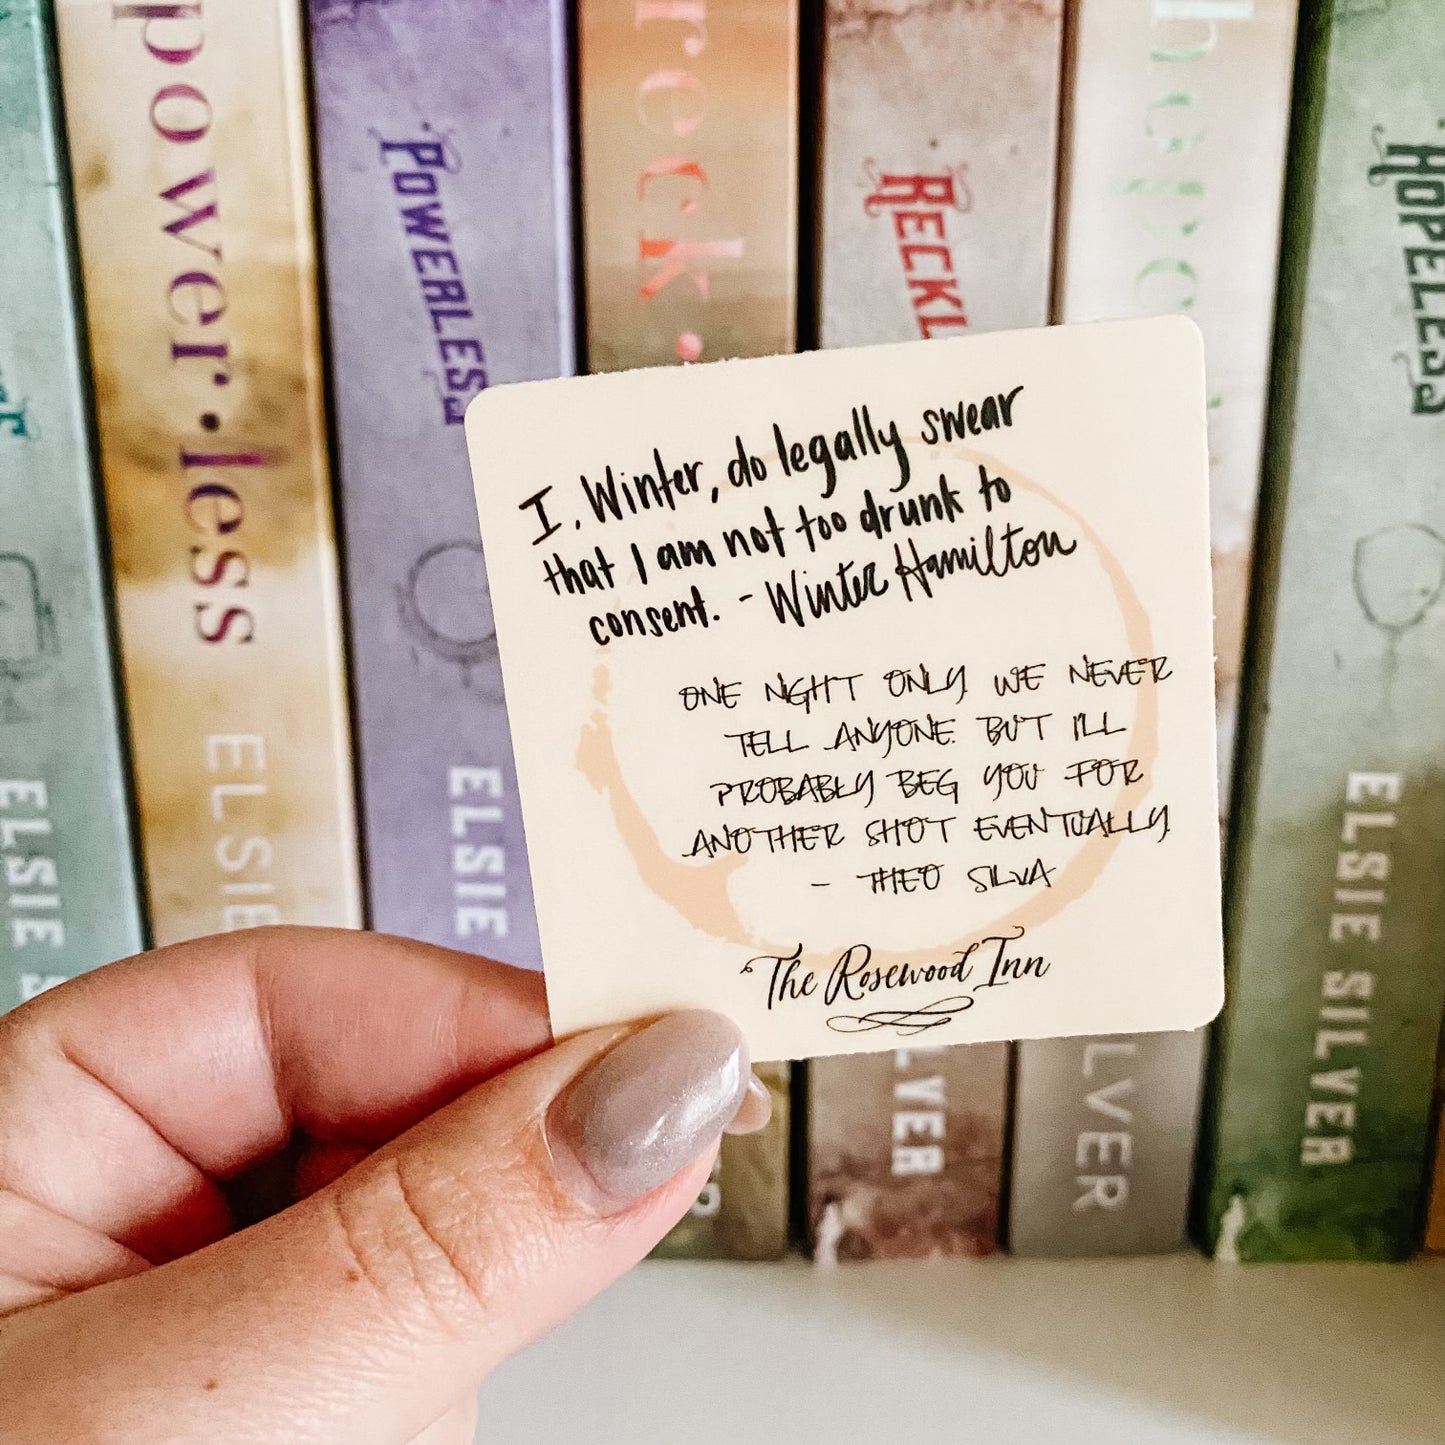 power·less
ELSIE
POWERLESS
ELSIE
reck·
RECKL
LVER
hope
LVER
HOPELESS
ELSIE SILVER
ELSIE S
I, Winter, do legally swear
that I am not too drunk to
consent. - Winter Hamilton
ONE NIGHT ONLY. WE NEVER
TELL ANYONE. BUT I'LL
PROBABLY BEG YOU FOR
ANOTHER SHOT EVENTUALLY.
- THEO SILVA
The Rosewood Inn